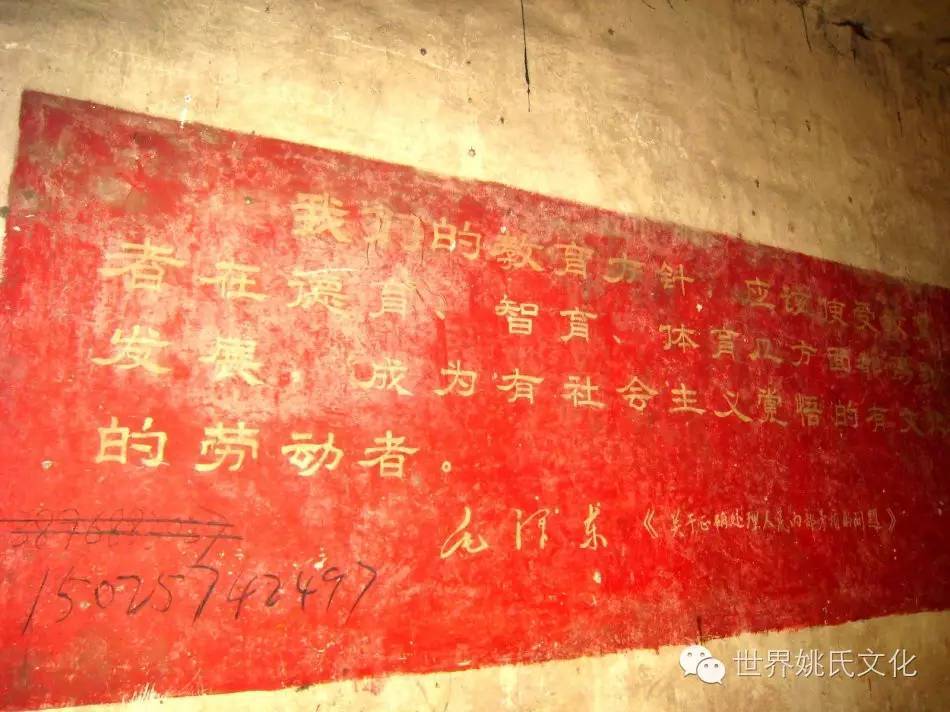 我们的教育方针，应该使受教育
者在德育、智育、体育几方面都得到
发展，成为有社会主义觉悟的有文化
的劳动者。
毛泽东 《关于正确处理人民内部矛盾的问题》
15025742497
世界姚氏文化